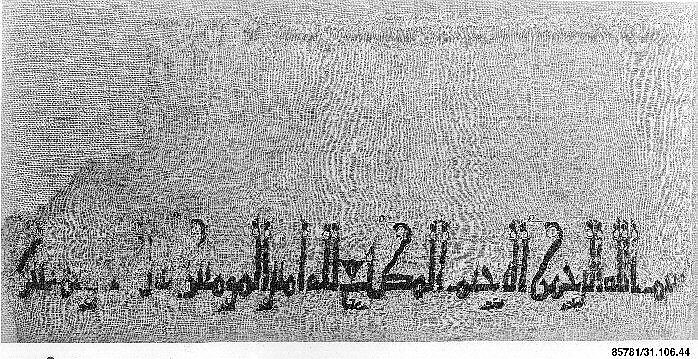 بسم الله الرحمن الرحيم المطيع لله امير المومنين
85781/31.106.44